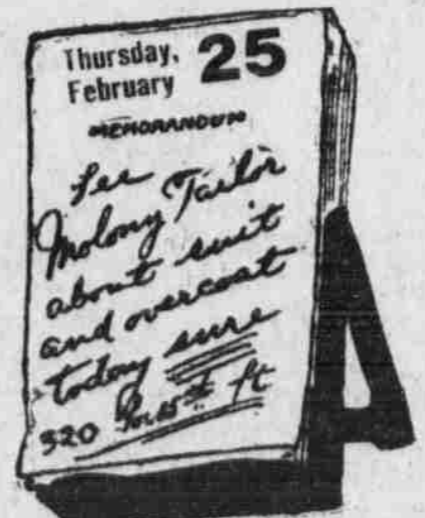 Thursday, 25
February
MEMORANDUM
See
Molony Tailor
about suit
and overcoat
today sure
320